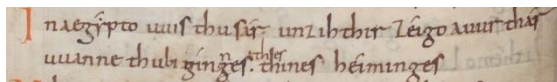 In aegypto uuis thu sár· unz ih thir zéigo auur thar
uuanne thu bi ginges. thes thines héiminges